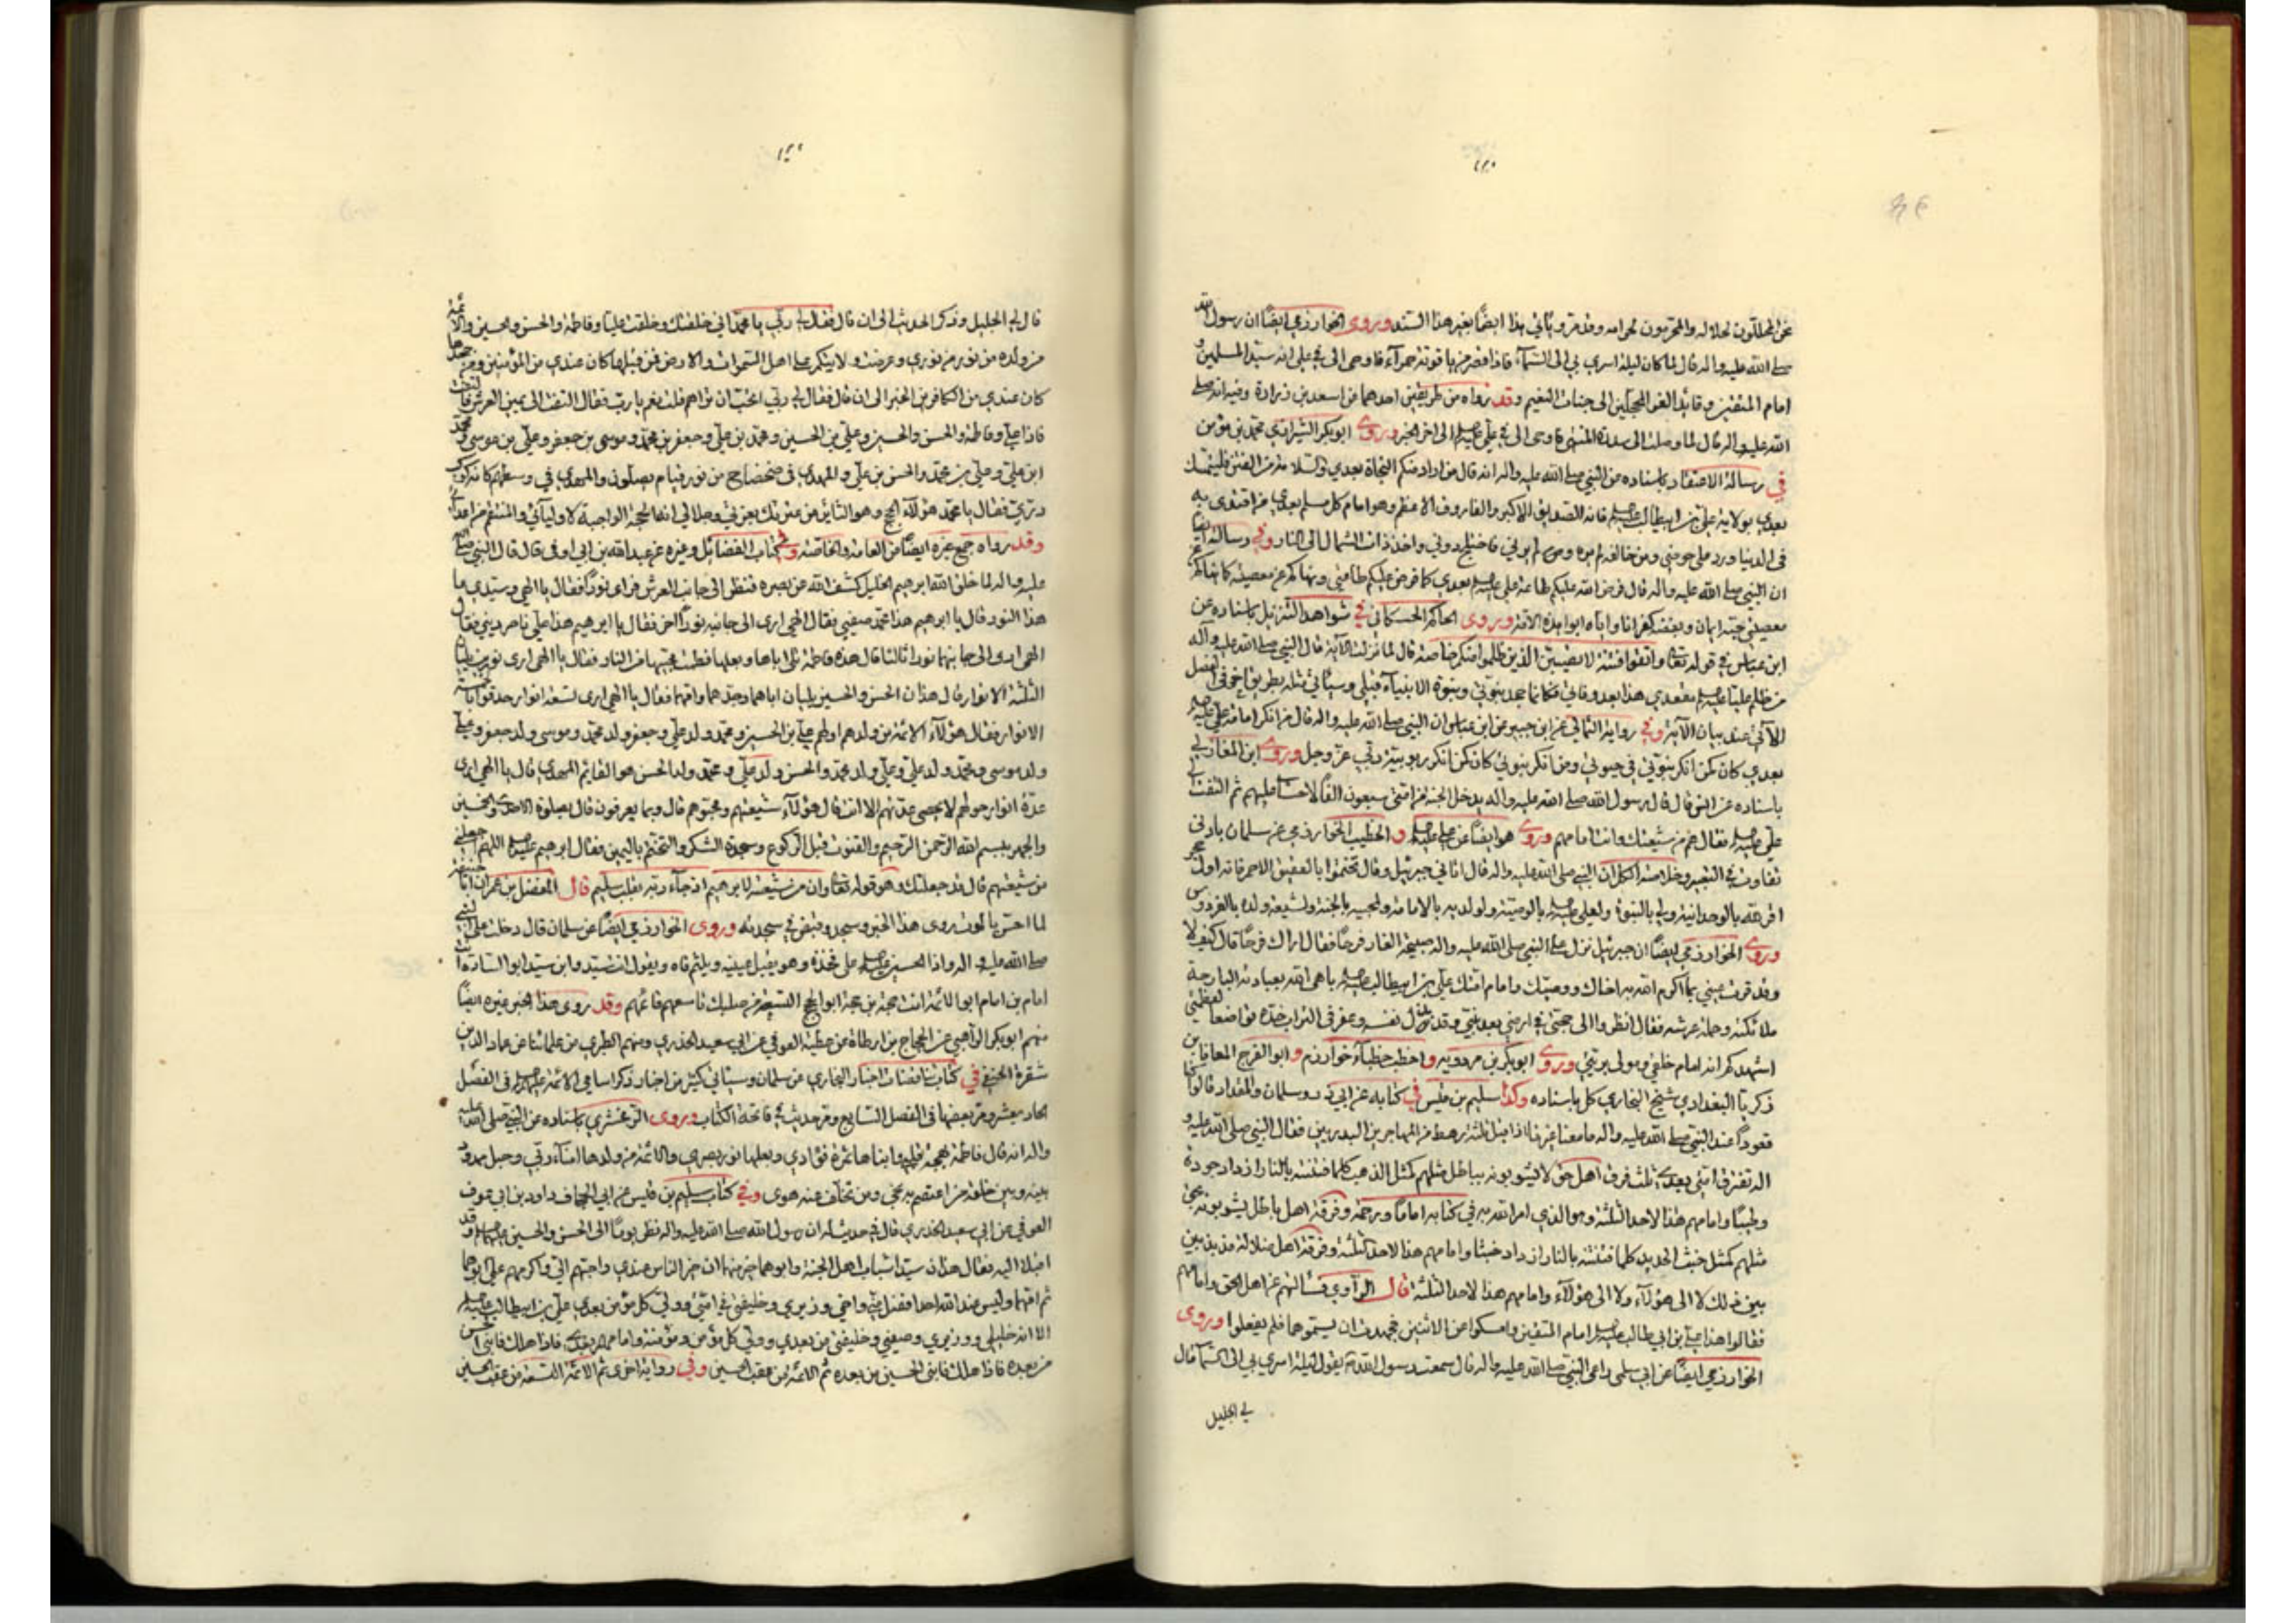 نحن المحللون لحلاله والمحرمون لحرامه وقد مر وياتي هذا ايضًا بغير هذا السند وروى الخوارزمي ايضًا ان رسول الله
صلى الله عليه واله قال لما كان ليلة اسري بي الى السماء فاذا قصر من ياقوتة حمراء فاوحى الي في علي انه سيد المسلمين و
امام المتقين وقائد الغر المحجلين الى جنات النعيم وقد رواه من طريقين احدهما عن اسعد بن زرارة وفيه انه صلى
الله عليه واله قال لما وصلت الى سدرة المنتهى فاوحى الي في علي الى اخر الخبر وروى ابو بكر الشيرازي محمد بن مؤمن
في رسالة الاعتقاد باسناده عن النبي صلى الله عليه واله انه قال من اراد منكم النجاة بعدي والسلامة من الفتن فليتمسك
بعدي بولاية علي بن ابيطالب فانه الصديق الاكبر والفاروق الاعظم وهو امام كل مسلم بعدي من اقتدى به
في الدنيا ورد على حوضي ومن خالفه لم يره ولم يرني فاختلج دوني واخذ ذات الشمال الى النار وفي رسالته ايضًا
ان النبي صلى الله عليه واله قال فرض الله عليكم طاعة علي بعدي كما فرض عليكم طاعتي ونهاكم عن معصيته كما نهاكم عن
معصيتي حبه ايمان وبغضه كفر انا واياه ابوا هذه الامة وروى الحاكم الحسكاني في شواهد التنزيل باسناده عن
ابن عباس في قوله تعالى واتقوا فتنة لا تصيبن الذين ظلموا منكم خاصة قال لما نزلت الاية قال النبي صلى الله عليه واله
من ظلم عليًا مقعدي هذا بعد وفاتي فكانما جحد بنبوتي ونبوة الانبياء قبلي وسيأتي مثله بطريق اخر في الفصل
الآتي عند بيان الآية وفي رواية الثمالي عن ابن جبير عن ابن عباس ان النبي صلى الله عليه واله قال من انكر امامة علي
بعدي كان كمن انكر نبوتي في حيوتي ومن انكر نبوتي كان كمن انكر ربوبية ربي عز وجل وروى ابن المغازلي
باسناده عن انس قال قال رسول الله صلى الله عليه واله يدخل الجنة من امتي سبعون الفًا لا حساب عليهم ثم التفت الى
علي فقال هم من شيعتك وانت امامهم وروى هو ايضًا عن علي والخطيب الخوارزمي عن سلمان بادنى
تفاوت في التعبير وخلاصة الكل ان النبي صلى الله عليه واله قال اتاني جبرئيل وقال تختموا بالعقيق الاحمر فانه اول حجر
اقر لله بالوحدانية ولي بالنبوة ولعلي بالوصية ولولديه بالامامة ولمحبيه بالجنة ولشيعة ولده بالفردوس
وروى الخوارزمي ايضًا ان جبرئيل نزل على النبي صلى الله عليه واله صبيحة الغار فرحًا فقال اراك فرحًا قال كيف لا
وقد قرت عيني بما اكرم الله به اخاك ووصيك وامام امتك علي بن ابيطالب باهى الله بعبادته البارحة
ملائكته وحملة عرشه فقال انظروا الى حجتي في ارضي بعد نبيي وقد نفسه وعفر في التراب خده تواضعا لعظمتي
اشهدكم انه امام خلقي ومولى بريتي وروى ابو بكر بن مردويه واخطب خطباء خوارزم وابو الفرج المعافا بن
زكريا البغدادي شيخ البخاري كل باسناده وكذا سليم بن قيس في كتابه عن ابي ذر وسلمان والمقداد قالوا كنا
قعودًا عند النبي صلى الله عليه واله ما معنا غيرنا اذا اقبل ثلثة رهط من المهاجرين البدريين فقال النبي صلى الله عليه و
اله تفترق امتي بعدي ثلث فرق اهل حق لا يشوبونه بباطل مثلهم كمثل الذهب كلما فتنته بالنار ازداد جودة
وطيبًا وامامهم هذا لاحد الثلثة وهو الذي امر الله به في كتابه امامًا ورحمة وفرقة اهل باطل لا يشوبونه بحق
مثلهم كمثل خبث الحديد كلما فتنته بالنار ازداد خبثًا وامامهم هذا لاحد الثلثة وفرقة اهل ضلالة مذبذبين
بين ذلك لا الى هؤلاء ولا الى هؤلاء وامامهم هذا لاحد الثلثة قال الراوي فسألتهم عن اهل الحق وامامهم
فقالوا هذا علي بن ابي طالب امام المتقين وامسكوا عن الاثنين فجهدت ان يسموهما فلم يفعلوا وروى
الخوارزمي ايضًا عن ابي سلمى راعي النبي صلى الله عليه واله قال سمعت رسول الله يقول ليلة اسري بي الى السماء قال
لي الجليل
قال لي الجليل وذكر الحديث الى ان قال فقال لي ربي يا محمد اني خلقتك وخلقت عليًا وفاطمة والحسن والحسين والائمة
من ولده من نور من نوري وعرضت ولايتكم على اهل السموات والارض فمن قبلها كان عندي من المؤمنين ومن جحدها
كان عندي من الكافرين الخبر الى ان قال فقال لي ربي اتحب ان تراهم قلت نعم يا رب فقال التفت الى يمين العرش فالتفت
فاذا علي وفاطمة والحسن والحسين وعلي بن الحسين ومحمد بن علي وجعفر بن محمد وموسى بن جعفر وعلي بن موسى ومحمد
ابن علي وعلي بن محمد والحسن بن علي والمهدي في ضحضاح من نور قيام يصلون والمهدي في وسطهم كانه كوكب
دري فقال يا محمد هؤلاء الحجج وهو الثائر من عترتك بعزتي وجلالي انه الحجة الواجبة لاوليائي والمنتقم من اعدائي
وقد رواه جمع غيره ايضًا من العامة والخاصة وفي كتاب الفضائل وغيره عن عبدالله بن ابي اوفى قال قال النبي صلى الله
عليه واله لما خلق الله ابرهيم الخليل كشف الله عن بصره فنظر الى جانب العرش فراى نورًا فقال يا الهي وسيدي ما
هذا النور قال يا ابرهيم هذا محمد صفيي فقال الهي ارى الى جانبه نورًا اخر فقال يا ابرهيم هذا علي ناصر ديني فقال
الهي ارى الى جانبهما نورا ثالثا قال هذه فاطمة تلي اباها وبعلها فطمت محبيها من النار فقال يا الهي ارى نورين يليان
الثلثة الانوار قال هذان الحسن والحسين يليان اباهما وجدهما وامهما فقال يا الهي ارى تسعة انوار احدقوا بالخمسة
الانوار فقال هؤلاء الائمة من ولدهم اولهم علي بن الحسين ومحمد ولد علي وجعفر ولد محمد وموسى ولد جعفر وعلي
ولد موسى ومحمد ولد علي وعلي ولد محمد والحسن ولد علي ومحمد ولد الحسن هو القائم المهدي قال يا الهي ارى
عدة انوار حولهم لا يحصي عدتهم الا انت قال هؤلاء شيعتهم ومحبوهم قال وبما يعرفون قال بصلوة الاحدى والخمسين
والجهر ببسم الله الرحمن الرحيم والقنوت قبل الركوع وسجدة الشكر والتختم باليمين فقال ابرهيم اللهم اجعلني
من شيعتهم قال قد جعلتك وهو قوله تعالى وان من شيعته لابرهيم اذ جاء ربه بقلب سليم قال المفضل بن عمر ان ابا حنيفة
لما احس بالموت روى هذا الخبر وسجد وقبض في سجدته وروى الخوارزمي ايضًا عن سلمان قال دخلت على النبي
صلى الله عليه واله واذا الحسين على فخذه وهو يقبل عينيه ويلثم فاه ويقول انت سيد وابن سيد ابو السادة انت
امام بن امام ابو الائمة انت حجة بن حجة ابو الحجج التسعة من صلبك تاسعهم قائمهم وقد روى هذا الخبر غيره ايضًا
منهم ابو بكر الواهبي عن الحجاج بن ارطاة عن عطية العوفي عن ابي سعيد الخدري ومنهم الطبري من علمائنا عن عماد الدين
شقرة الحنفي في كتاب تناقضات اخبار البخاري عن سلمان وسياتي كثير من اخبار ذكر اسامي الائمة في الفصل
الحاديعشر ومر بعضها في الفصل السابع ومر حديث في فاتحة الكتاب وروى الزمخشري باسناده عن النبي صلى الله عليه
واله انه قال فاطمة مهجة قلبي وابناها ثمرة فؤادي وبعلها نور بصري والائمة من ولدها امناء ربي وحبل ممدود
بينه وبين خلقه من اعتصم به نجى ومن تخلف عنه هوى وفي كتاب سليم بن قيس عن ابي الجحاف داود بن ابي عوف
العوفي عن ابي سعيد الخدري قال في حديث له ان رسول الله صلى الله عليه واله نظر يومًا الى الحسن والحسين وقد
اقبلا اليه فقال هذان سيدا شباب اهل الجنة وابوهما خير منهما ان خير الناس عندي واحبهم الي واكرمهم علي ابوهما
ثم امهما وليس عند الله احد افضل مني واخي وزيري وخليفتي في امتي وولي كل مؤمن بعدي علي بن ابيطالب
الا انه خليلي ووزيري وصفيي وخليفتي من بعدي وولي كل مؤمن ومؤمنة وامامهم بعدي فاذا هلك فابني الحسن
من بعده فاذا هلك فابني الحسين من بعده ثم الائمة من عقب الحسين وفي رواية اخرى ثم الائمة التسعة من عقب الحسين